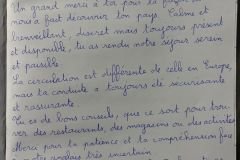 Un grand merci à toi pour la façon
nous a fait découvrir ton pays. Calme et
bienveillant, discret mais toujours présent
et disponible, tu as rendu notre séjour serein
et paisible
La circulation est différente de celle en Europe,
mais ta conduite a toujours été sécurisante
et rassurante.
Tu es de bons conseils, que ce soit pour trou-
ver des restaurants, des magasins ou des activités
Merci pour ta patience et ta compréhension face
anglais très incertain